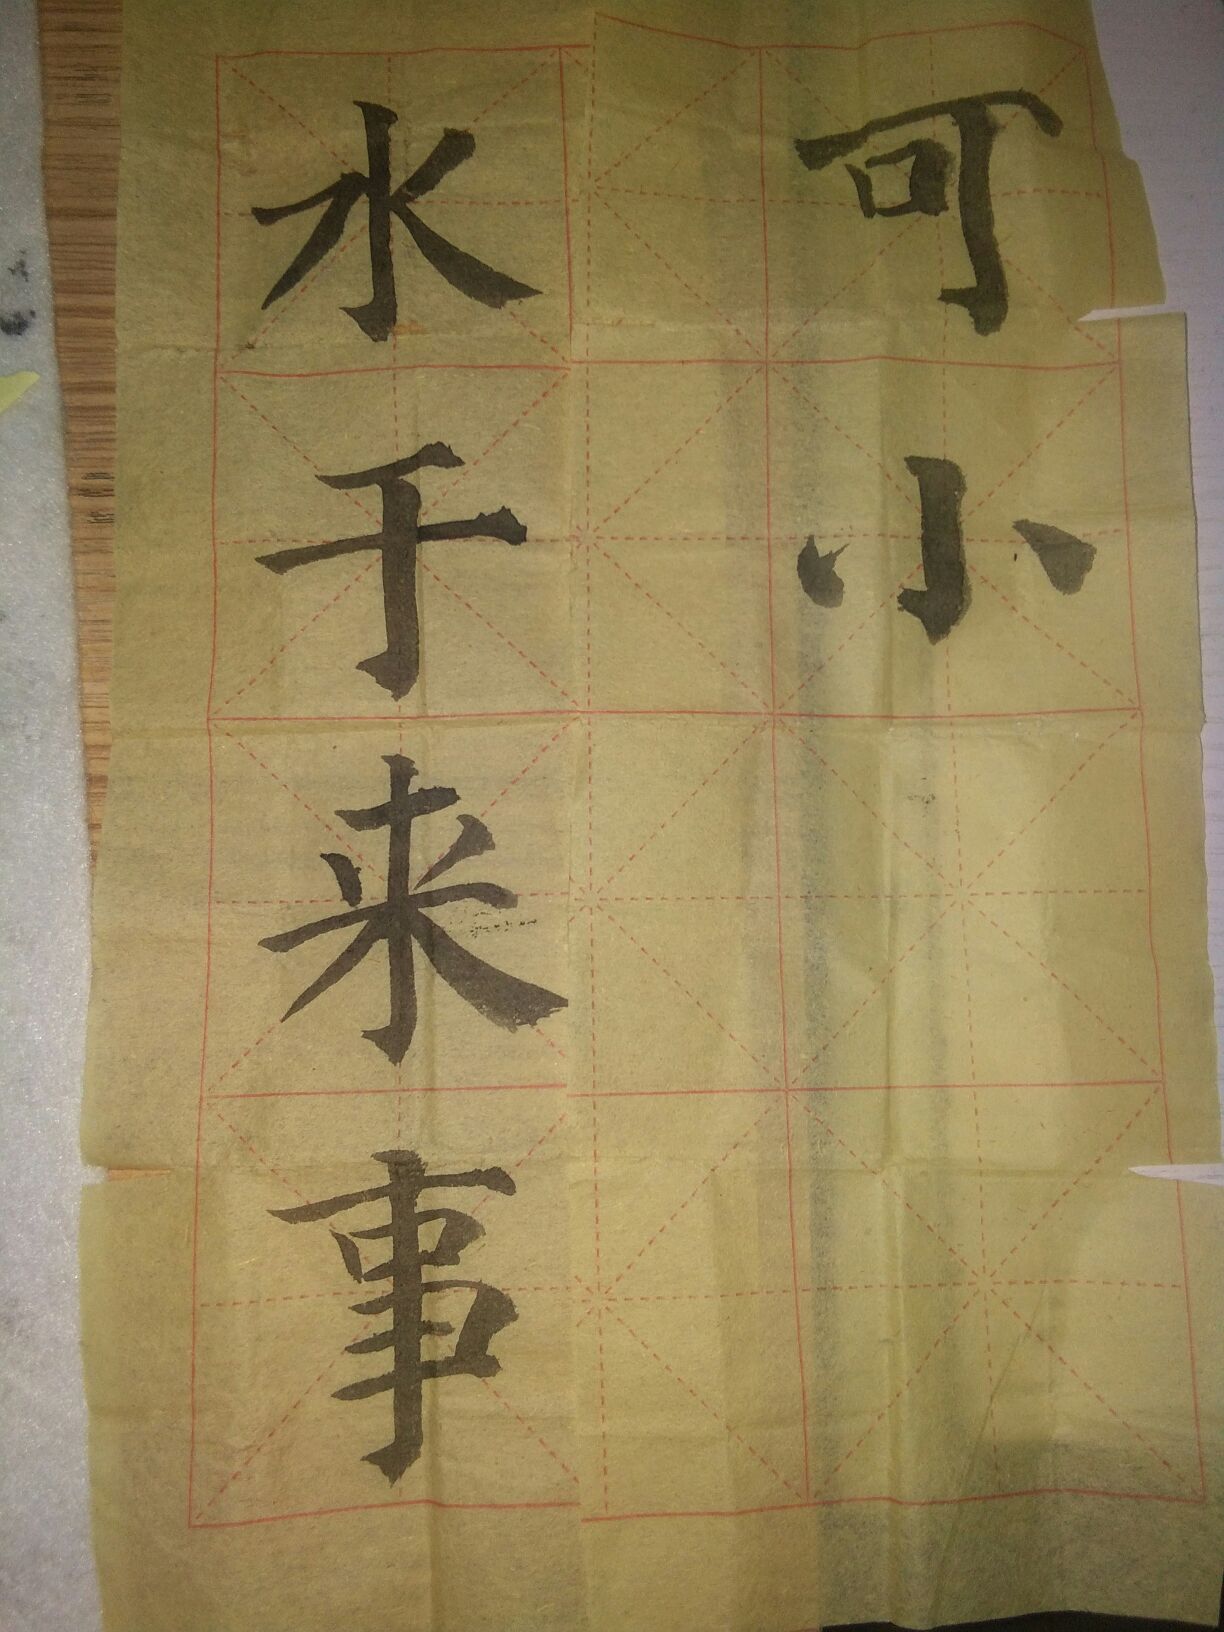 可小
水于来事